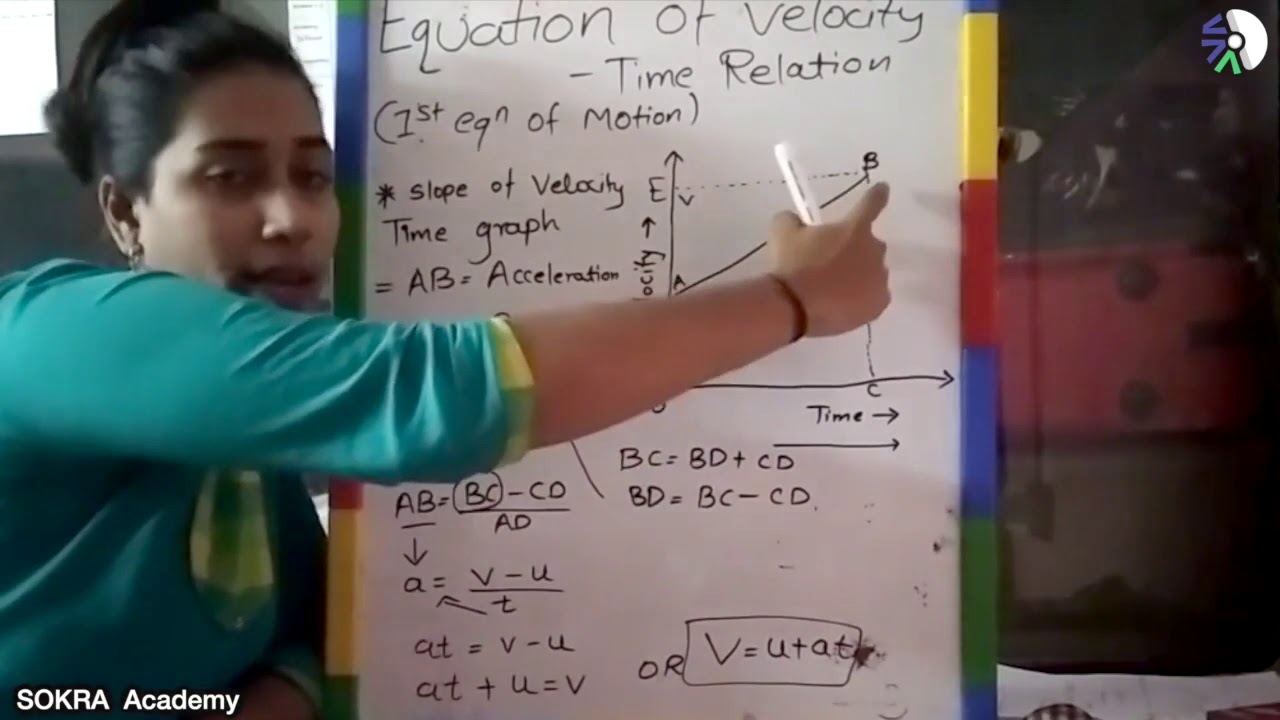 Equation of Velocity
- Time Relation
(1st eqn of Motion)
* Slope of Velocity
Time graph
= AB = Acceleration
B
E
V
A
C
Time →
BC = BD + CD
BD = BC - CD.
AB = BC - CD
AD
a = v - u
t
at = v - u
at + u = v
OR V = u + at
SOKRA Academy